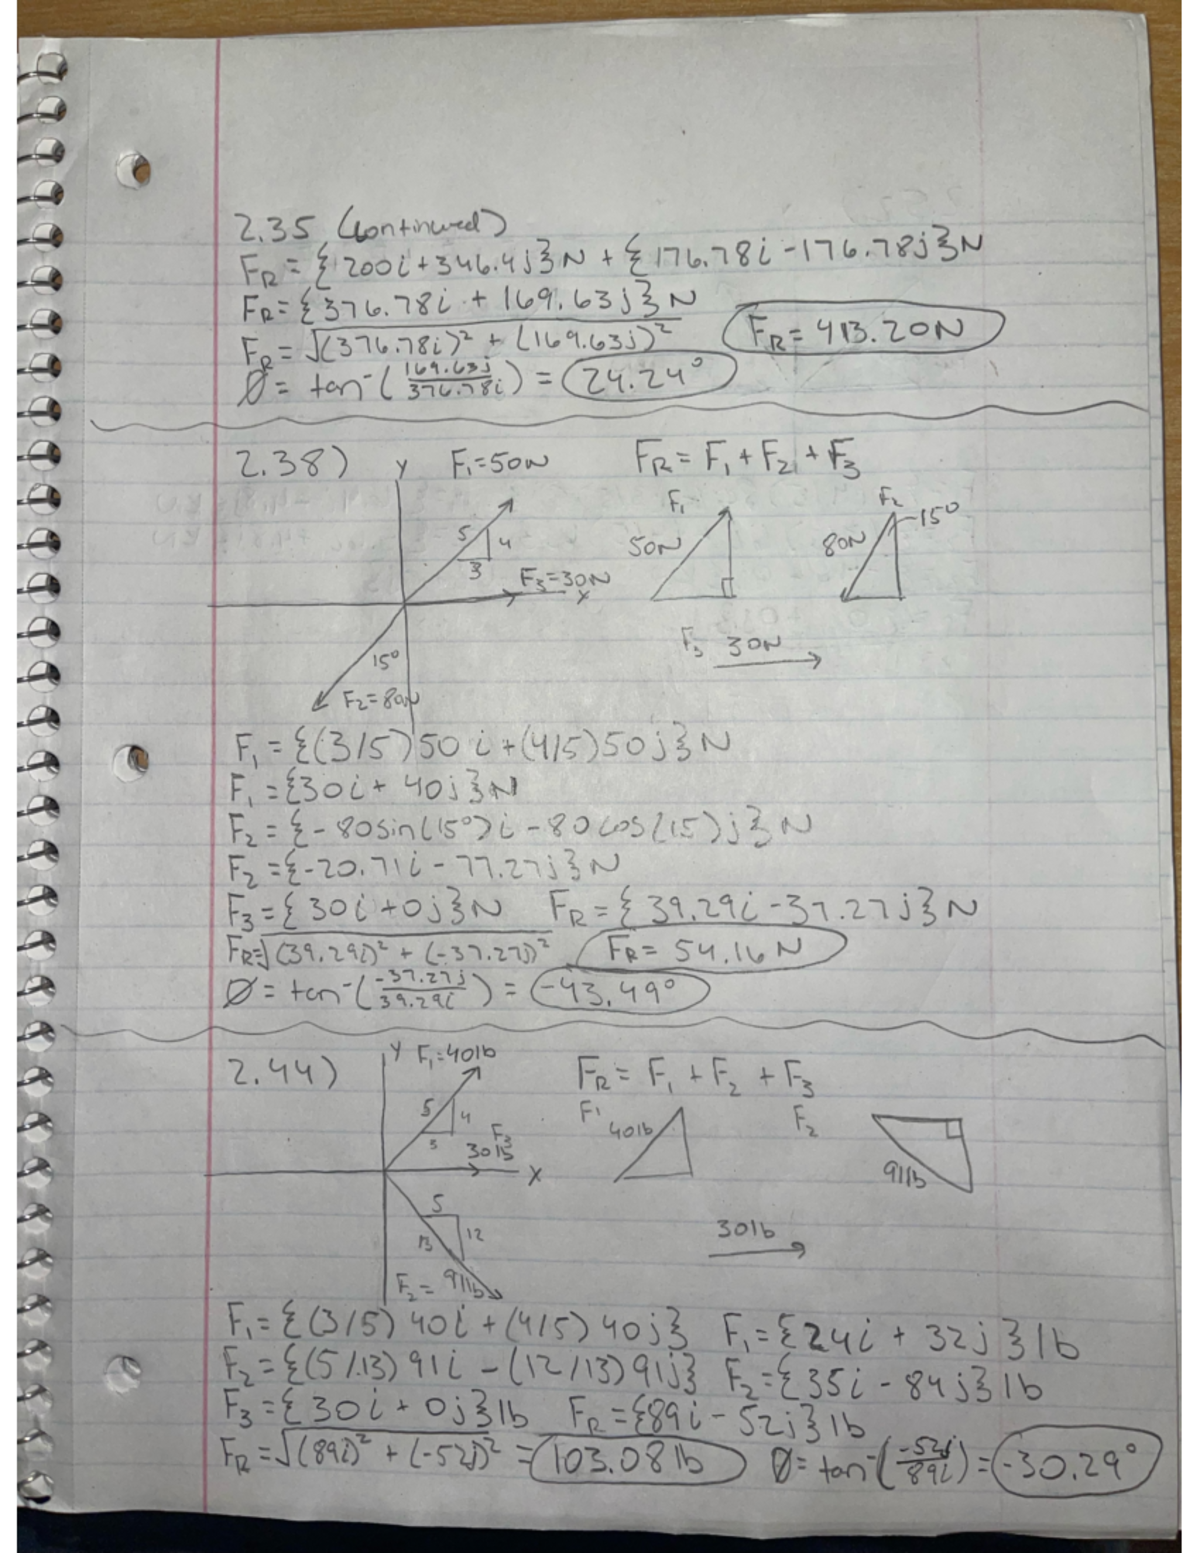 2.35 (continued)
FR = {200i + 346.4j}N + {176.78i - 176.78j}N
FR = {376.78i + 169.63j}N
FR = √(376.78i)² + (169.63j)² FR = 413.20N
Ø = tan⁻(169.63j/376.78i) = 24.24°
2.38) y F₁=50N FR = F₁ + F₂ + F₃
5 4 3
F₃=30N x
15°
F₂=80N
F₁ 50N
F₂ 80N 15°
F₃ 30N
F₁ = {(3/5)50i + (4/5)50j}N
F₁ = {30i + 40j}N
F₂ = {-80sin(15°)i - 80cos(15)j}N
F₂ = {-20.71i - 77.27j}N
F₃ = {30i + 0j}N FR = {39.29i - 37.27j}N
FR = √(39.29i)² + (-37.27j)² FR = 54.16N
Ø = tan⁻(-37.27j/39.29i) = -43.49°
2.44) y F₁=40lb FR = F₁ + F₂ + F₃
5 4 3
F₃
30lb x
5
13 12
F₂= 91lb
F¹ 40lb
F₂ 91lb
30lb
F₁ = {(3/5)40i + (4/5)40j} F₁ = {24i + 32j}lb
F₂ = {(5/13)91i - (12/13)91j} F₂ = {35i - 84j}lb
F₃ = {30i + 0j}lb FR = {89i - 52j}lb
FR = √(89i)² + (-52j)² = 103.08lb Ø = tan⁻(-52j/89i) = -30.29°